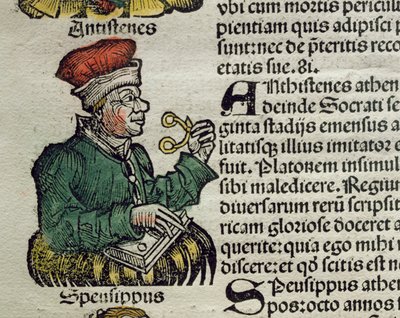 Antistenes
Speusippus
vbi cum mortis pericul
pientiam quis adipisci p
sunt: nec de p̄teritis reco
etatis sue. 81.
ANthistenes athen
deinde Socrati se
ginta stadijs emensus a
litatisq; illius imitator e
fuit. Platonem insimul
sibi maledicere. Regium
diuersarum rerū scripsit
ricam gloriose doceret a
querite: quia ego mihi
discere: et qd̄ scitis est ne
SPeusippus athe
Spos: octo annos